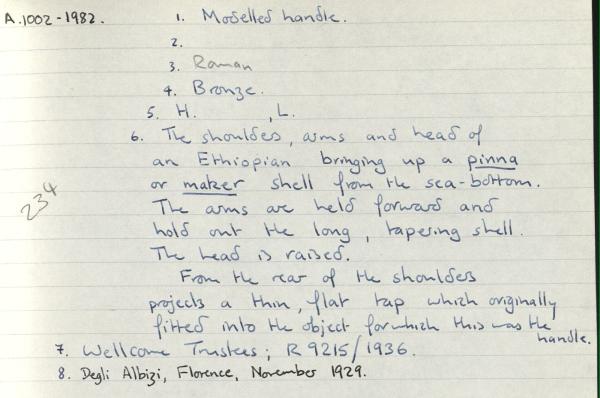 A.1002-1982. 1. Modelled handle.
2.
3. Roman
4. Bronze.
5. H. , L.
6. The shoulders, arms and head of
an Ethiopian bringing up a pinna
or maker shell from the sea-bottom.
The arms are held forward and
hold out the long, tapering shell.
The head is raised.
From the rear of the shoulders
projects a thin, flat tap which originally
fitted into the object for which this was the
handle.
234
7. Wellcome Trustees; R 9215/1936.
8. Degli Albizi, Florence, November 1929.